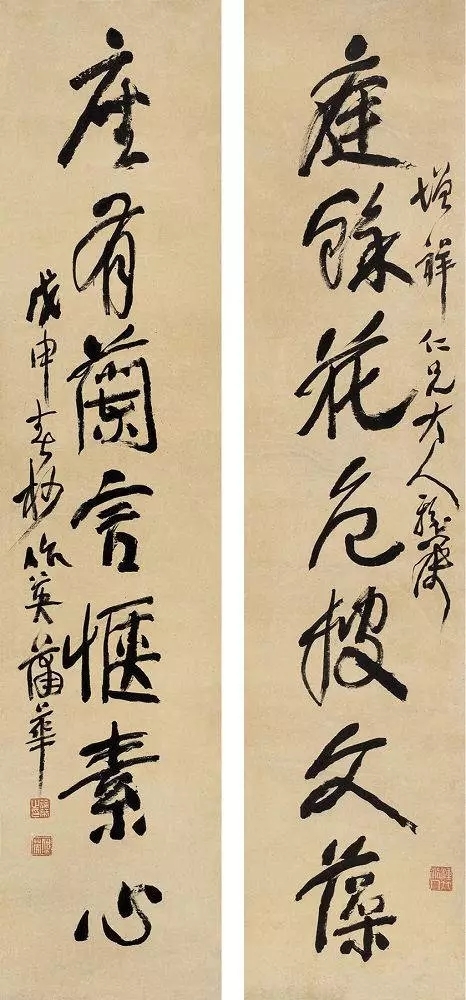 增祥仁兄大人雅屬
庭餘花色披文藻
座有蘭言愜素心
戊申春杪作英蒲華